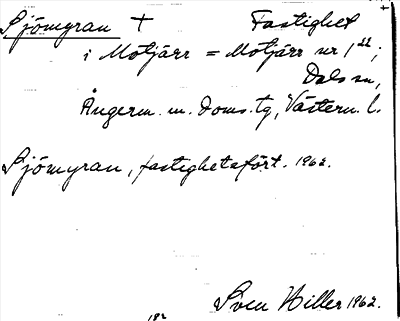 Sjömyran + Fastighet
i Motjärr = Motjärr nr 1²²;
Dals sn,
Ångerm. m. doms. tg, Västern. l.
Sjömyran, fastighetsfört. 1962.
Sven Hiller 1962.